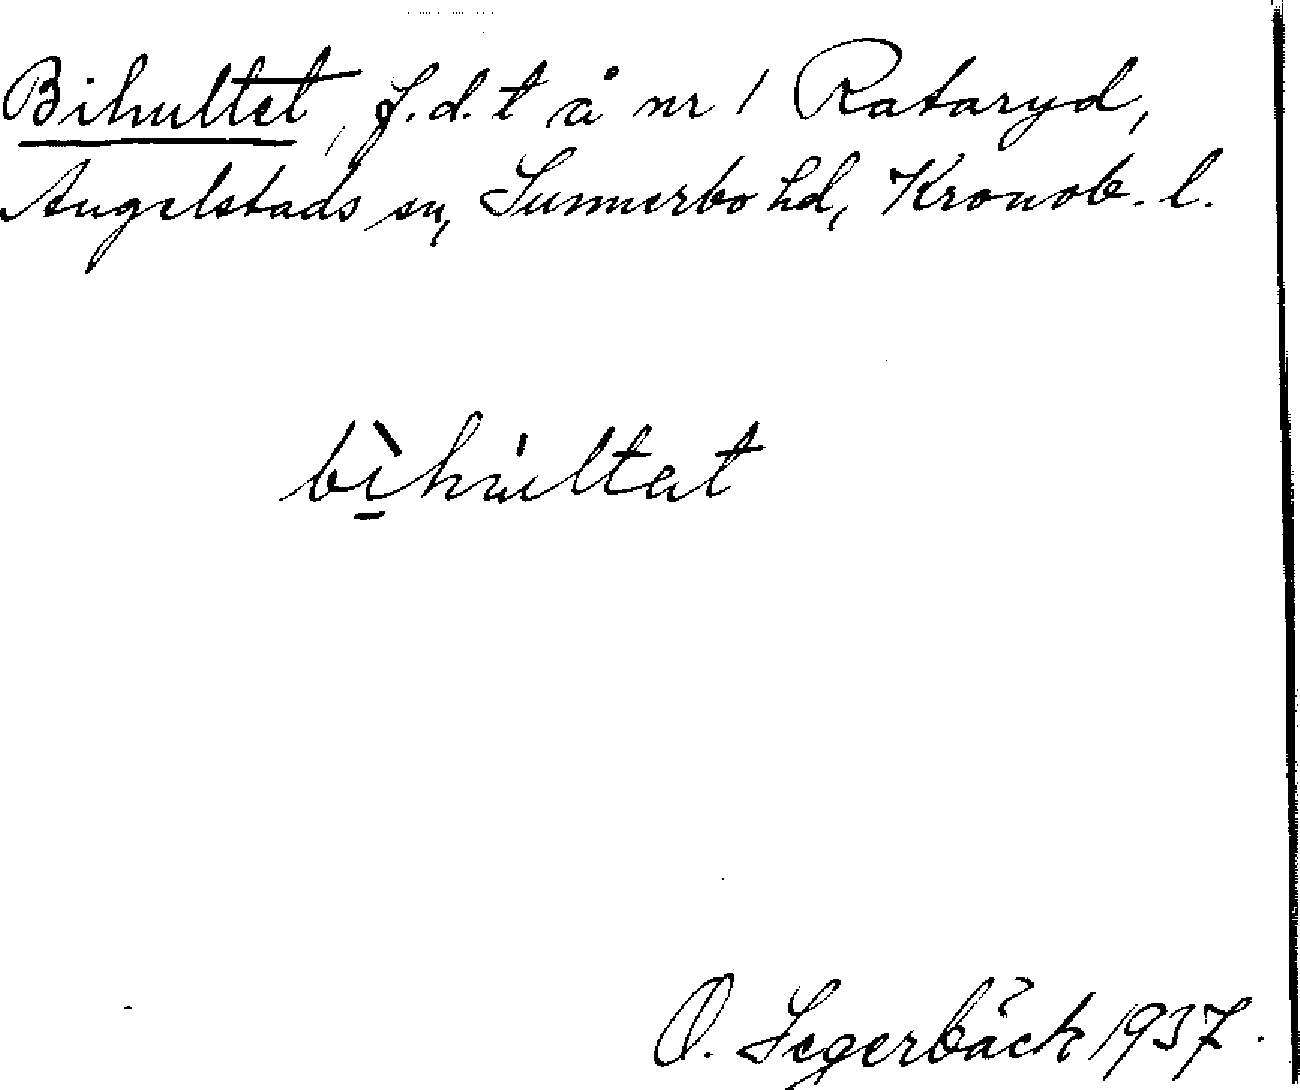 Bihultet, f.d.t å nr 1 Rataryd,
Angelstads sn, Sunnerbo hd, Kronob. l.
bìhu̍ltat
O. Segerbäck 1937.